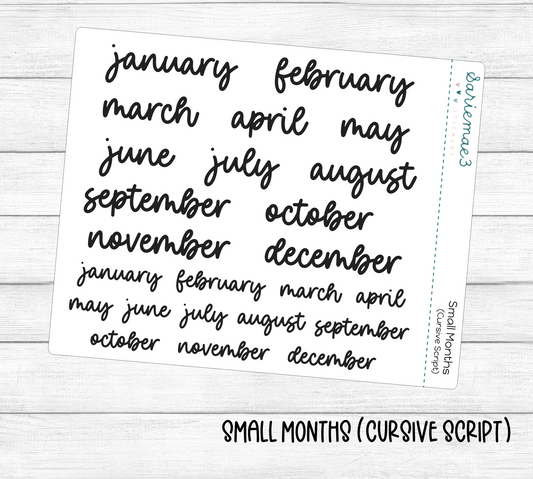 january february
march april may
june july august
september october
november december
january february march april
may june july august september
october november december
Sariemae3
Small Months
(Cursive Script)
SMALL MONTHS (CURSIVE SCRIPT)